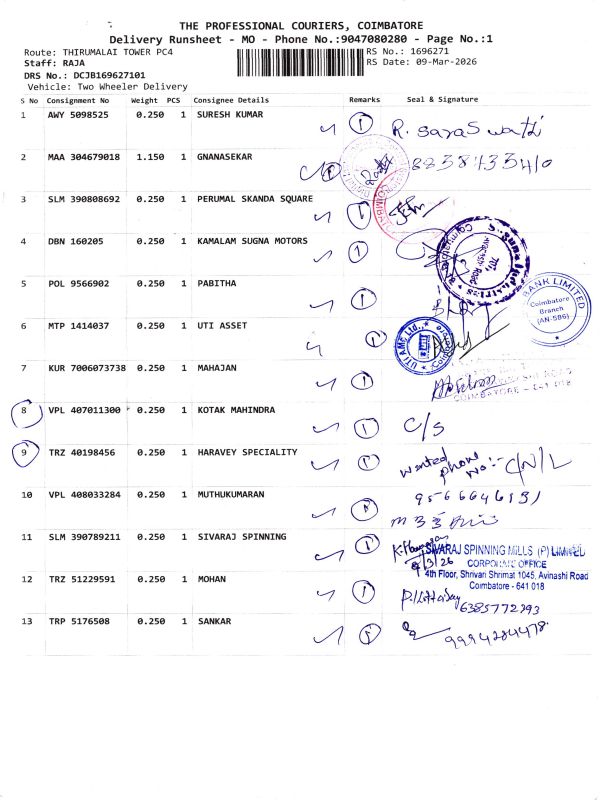 THE PROFESSIONAL COURIERS, COIMBATORE
Delivery Runsheet - MO - Phone No.:9047080280 - Page No.:1
Route: THIRUMALAI TOWER PC4
RS No.: 1696271
Staff: RAJA
RS Date: 09-Mar-2026
DRS No.: DCJB169627101
Vehicle: Two Wheeler Delivery
S No Consignment No Weight PCS Consignee Details Remarks Seal & Signature
1 AWY 5098525 0.250 1 SURESH KUMAR 1 R. Saraswathi
2 MAA 304679018 1.150 1 GNANASEKAR 1
3 SLM 390808692 0.250 1 PERUMAL SKANDA SQUARE 1
4 DBN 160205 0.250 1 KAMALAM SUGNA MOTORS 1
5 POL 9566902 0.250 1 PABITHA 1
BANK LIMITED
Coimbatore
Branch
(AN-586)
6 MTP 1414037 0.250 1 UTI ASSET 1
UTI AMC Ltd.,
7 KUR 7006073738 0.250 1 MAHAJAN 1
COIMBATORE - 641 018
8 VPL 407011300 0.250 1 KOTAK MAHINDRA 1 C/S
9 TRZ 40198456 0.250 1 HARAVEY SPECIALITY 1 wanted phone No:- C/N/L
10 VPL 408033284 0.250 1 MUTHUKUMARAN 1
11 SLM 390789211 0.250 1 SIVARAJ SPINNING 1
SIVARAJ SPINNING MILLS (P) LIMITED
CORPORATE OFFICE
4th Floor, Shrivari Shrimat 1045, Avinashi Road
Coimbatore - 641 018
12 TRZ 51229591 0.250 1 MOHAN 1
6385772293
13 TRP 5176508 0.250 1 SANKAR 1